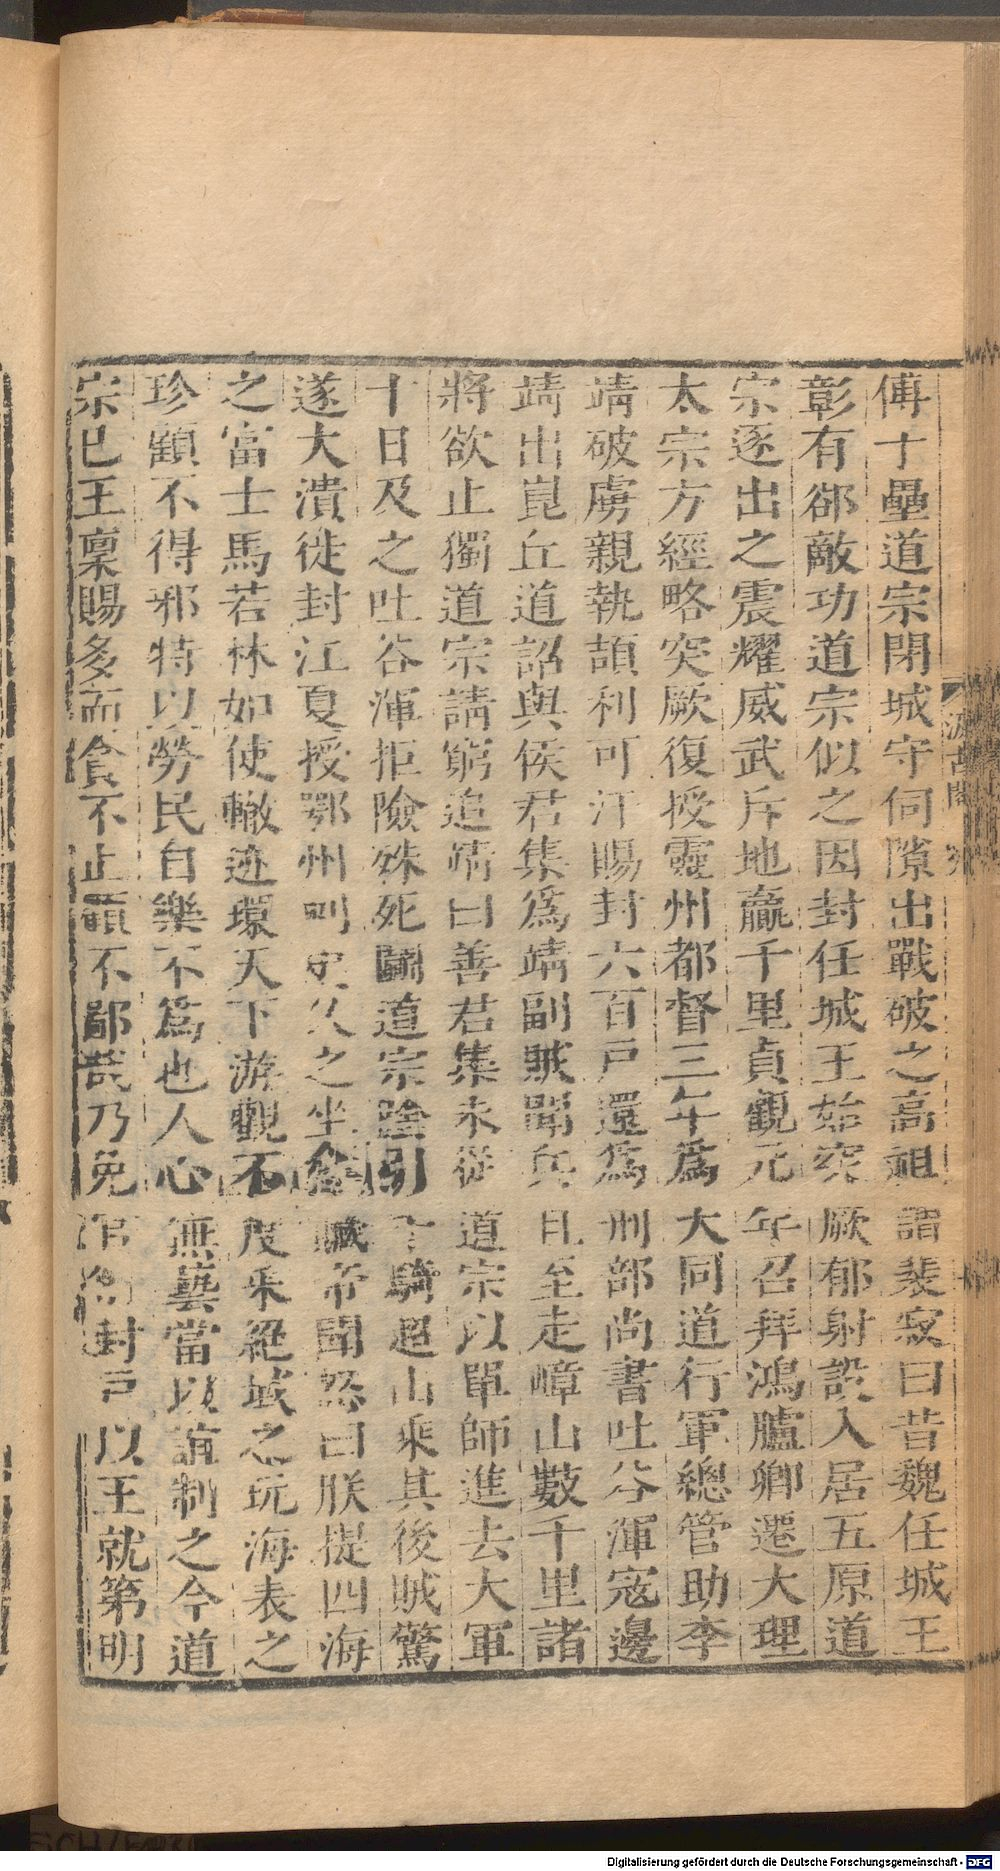 傅十壘道宗閉城守伺隙出戰破之高祖謂裴寂曰昔魏任城王
彰有郤敵功道宗似之因封任城王始突厥郁射設入居五原道
宗逐出之震耀威武斥地贏千里貞觀元年召拜鴻臚卿遷大理
太宗方經略突厥復授靈州都督三年爲大同道行軍總管助李
靖破虜親執頡利可汗賜封六百戸還爲刑部尚書吐谷渾寇邊
靖出崑丘道詔與侯君集爲靖副賊聞兵且至走嶂山數千里諸
將欲止獨道宗請窮追靖曰善君集未從道宗以單師進去大軍
十日及之吐谷渾拒險殊死鬭道宗陰引千騎超山乘其後賊驚
遂大潰徙封江夏授鄂州刺史久之坐贓帝聞怒曰朕提四海
之富士馬若林如使轍迹環天下游觀不度采絕域之玩海表之
珍顧不得邪特以勞民自樂不爲也人心無藝當以誼制之今道
宗已王稟賜多而貪不止顧不鄙哉乃免官削封戸以王就第明
汲古閣
Digitalisierung gefördert durch die Deutsche Forschungsgemeinschaft - DFG